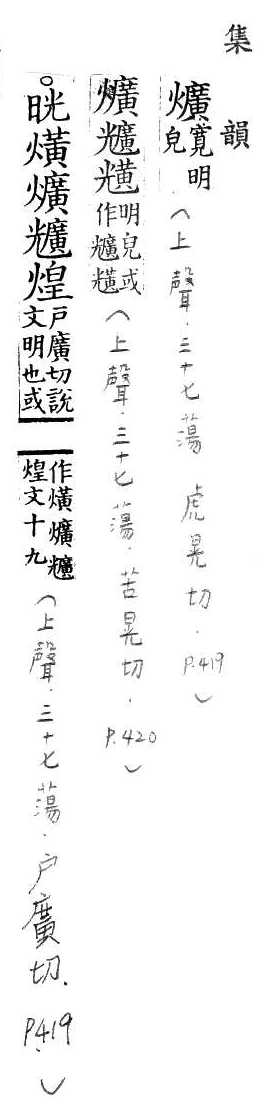 集韻
爌寬明皃(上聲．三十七蕩 虎晃切．P.419)
爌𤓅𤒑明皃或作𤓅𤒑(上聲．三十七蕩．苦晃切．P.420)
。晄熿爌煌戶廣切說文明也或作熿爌煌文十九(上聲．三十七蕩．戶廣切．P419.)